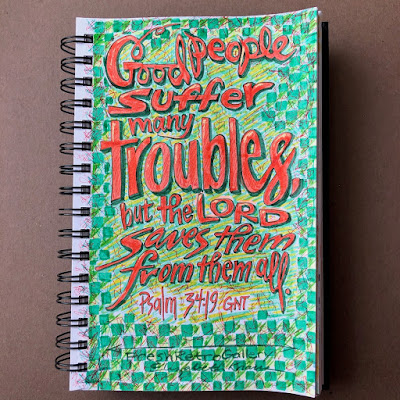 Good people
suffer
many
troubles,
but the LORD
saves them
from them all.
Psalm 34:19 GNT
FreshRetroGallery